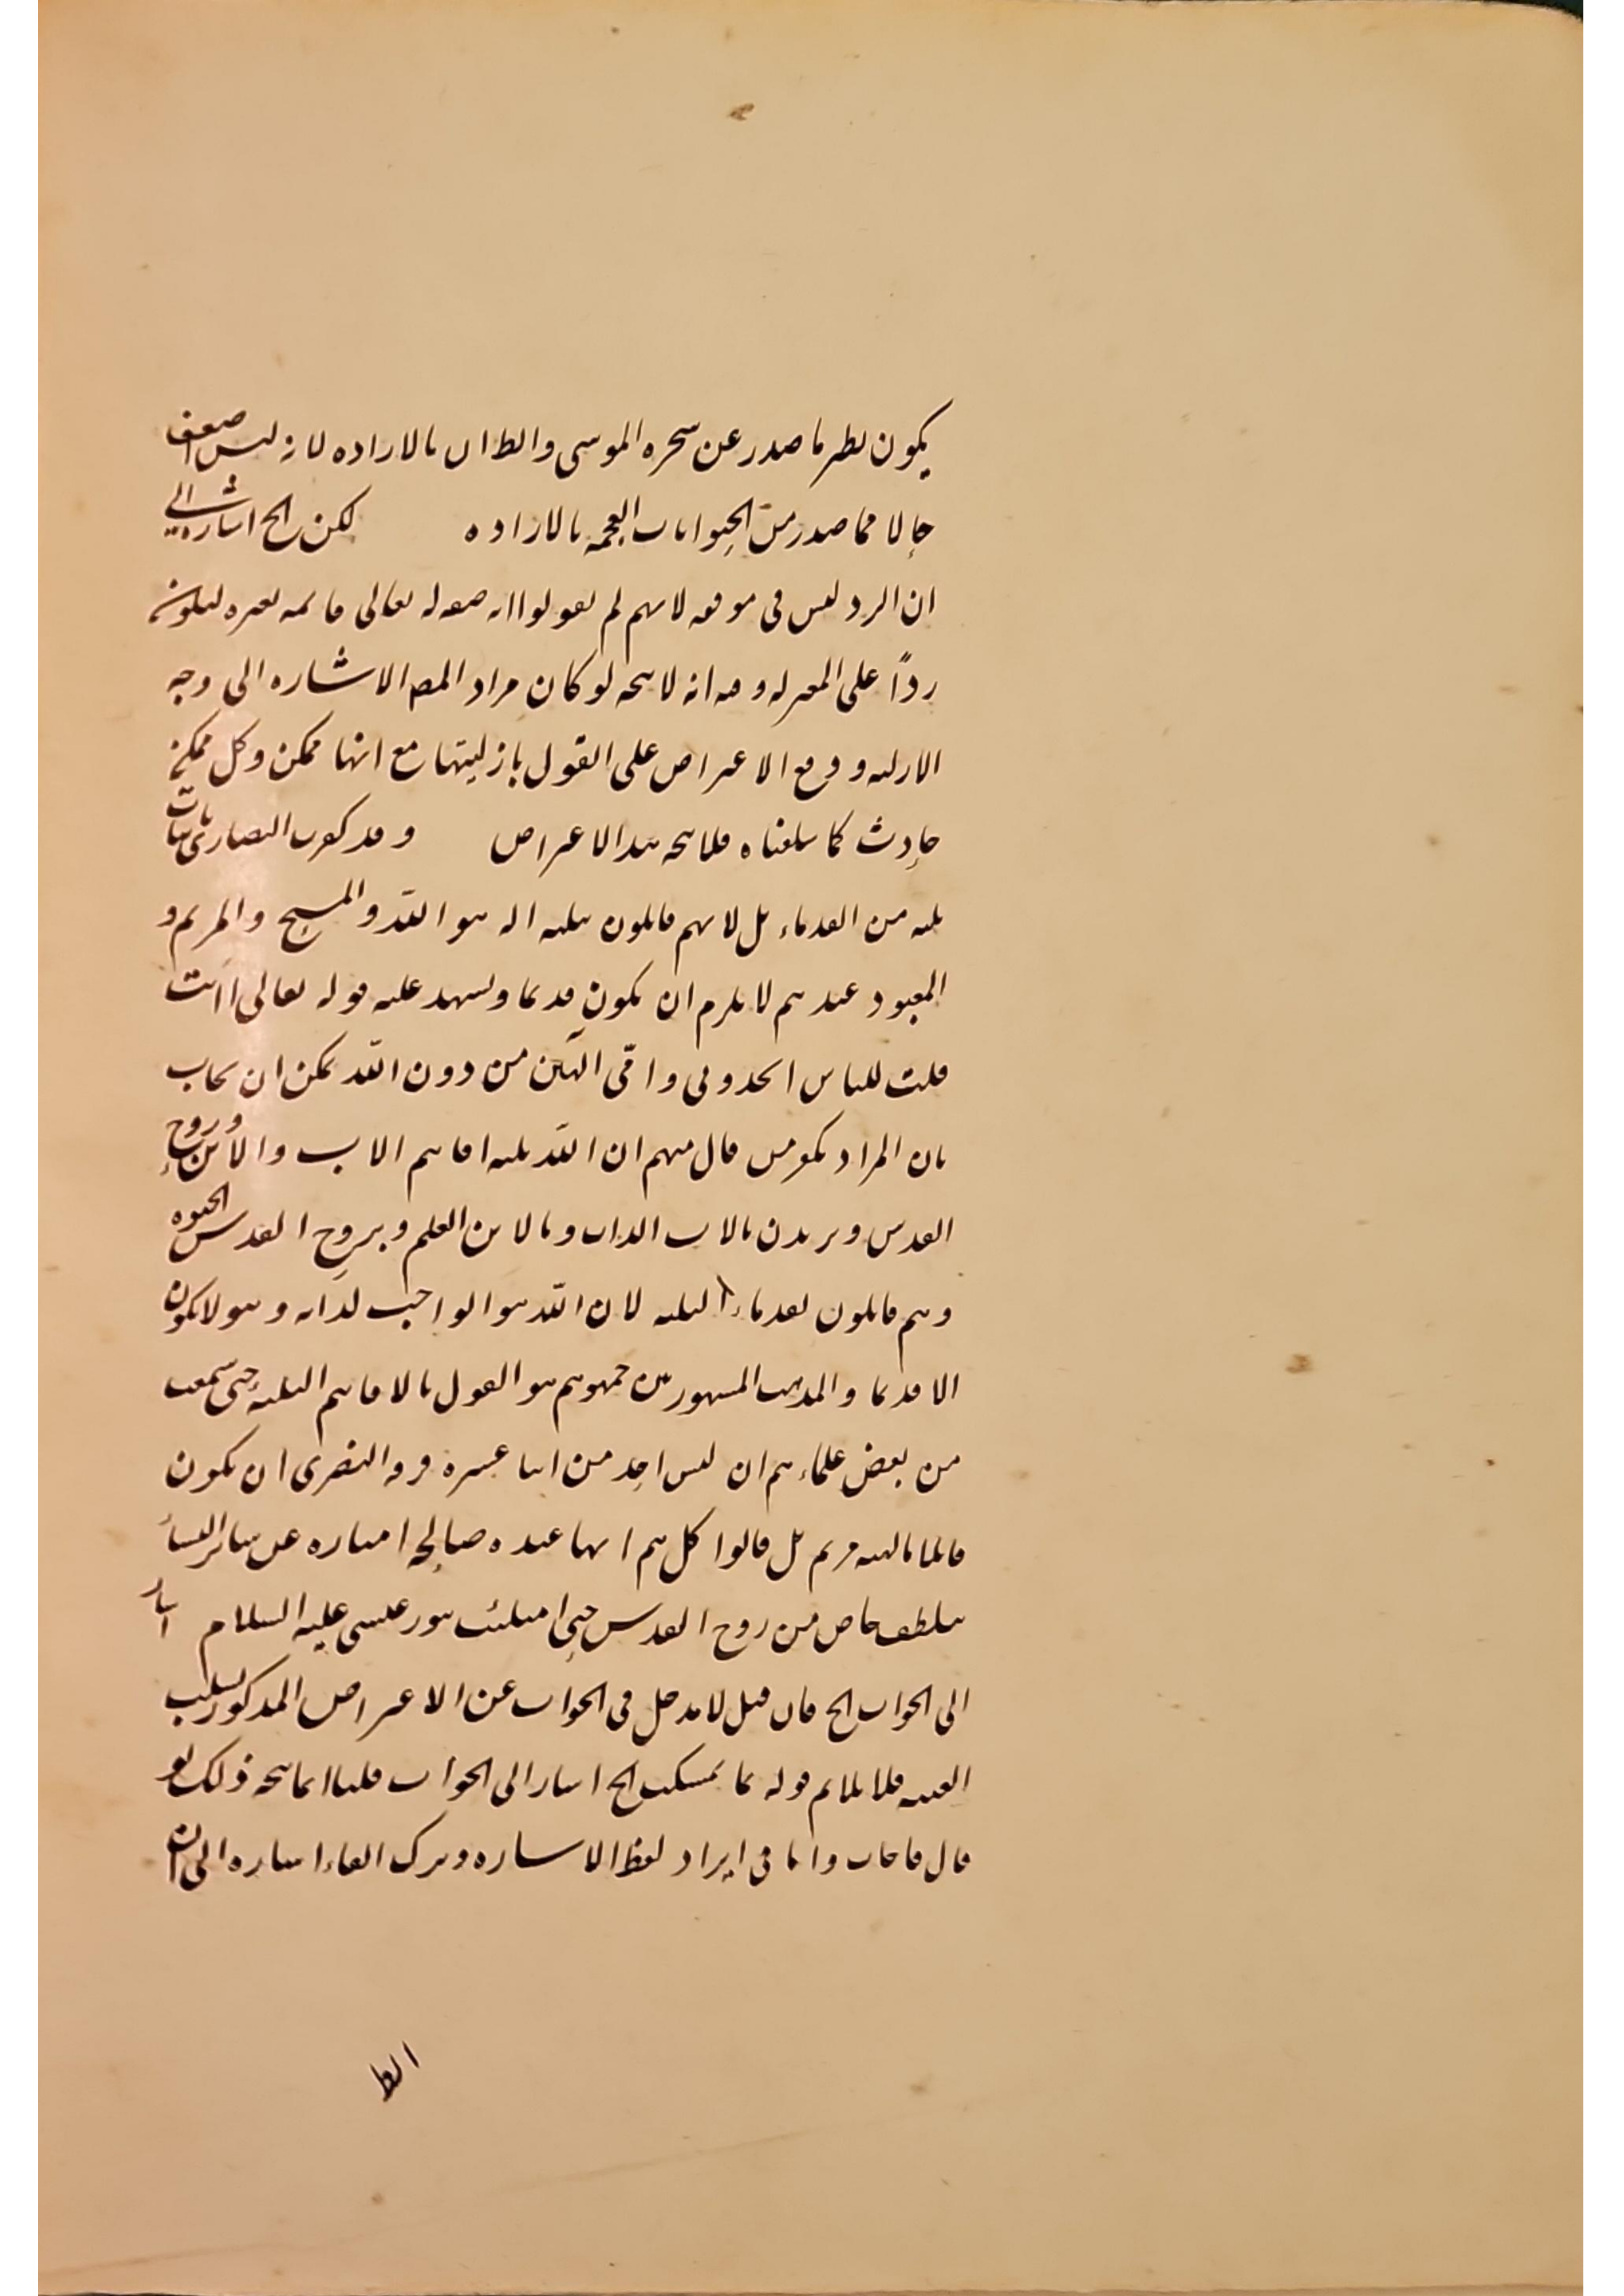 يكون نظير ما صدر عن سحرة الموسى والطيران بالارادة لانه ليس اضعف
حالا مما صدر من الحيوانات العجمة بالارادة لكن الخ اشارة الى
ان الرد ليس فى موقعه لانهم لم يقولوا انه صفة له تعالى قائمة بغيره ليكون
رداً على المعتزلة وفيه انه لا يتجه لو كان مراد المص الاشارة الى وجه
الازلية ووقع الاعتراض على القول بازليتها مع انها ممكن وكل ممكن
حادث كما سلفناه فلا يتجه هذا الاعتراض وقد كفرت النصارى باثبات
ثلثة من القدماء بل لانهم قائلون بثلثة اله هو الله والمسيح والمريم و
المعبود عندهم لا يلزم ان يكون قديما ويشهد عليه قوله تعالى أانت
قلت للناس اتخذونى وامّى الهين من دون الله يمكن ان يجاب
بان المراد بكفر من قال منهم ان الله ثلثة اقانيم الاب والابن وروح
القدس ويريدن بالاب الذات وبالابن العلم وبروح القدس الحيوة
وهم قائلون بقدماء الثلثة لان الله هو الواجب لذاته وهو لا يكون
الا قديما والمذهب المشهور بين جمهورهم هو القول بالاقانيم الثلثة حتى سمعت
من بعض علماءهم ان ليس احد من اثنا عشرة فرقة النصرى ان يكون
قائلا بالهية مريم بل قالوا كلهم انها عبدة صالحة امتازه عن سائر النساء
بلطف خاص من روح القدس حتى امتلئت بنور عيسى عليه السلام اشار
الى الجواب الخ فان قيل لا مدخل فى الجواب عن الاعتراض المذكور لسلب
الغيرية فلا يلائم قوله بما تمسكت الخ اشار الى الجواب قلنا انما يتجه ذلك لو
قال فاجاب واما فى ايراد لفظ الاشارة وترك الفاء اشارة الى ان